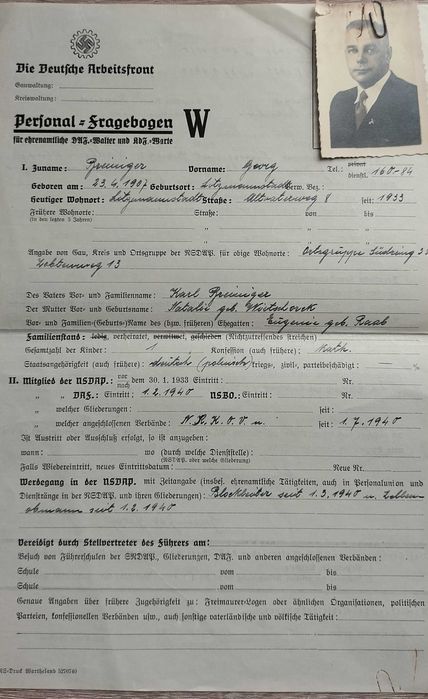 Die Deutsche Arbeitsfront
Gauwaltung:
Kreiswaltung:
Personal-Fragebogen W
für ehrenamtliche DAF.-Walter und KdF.-Warte
I. Zuname: Preiniger Vorname: Georg Tel.: privat dienstl. 160-84
Geboren am: 23.4.1907 Geburtsort: Litzmannstadt Verw. Bez.:
Heutiger Wohnort: Litzmannstadt Straße: Altvaterweg 8 seit: 1933
Frühere Wohnorte: Straße: von bis
(in den letzten 5 Jahren)
" " "
" " "
Angabe von Gau, Kreis und Ortsgruppe der NSDAP. für obige Wohnorte: Ortsgruppe Südring
13
Des Vaters Vor- und Familienname: Karl Preiniger
Der Mutter Vor- und Geburtsname: Natalie geb.
Vor- und Familien-(Geburts-)Name des (bzw. früheren) Ehegatten: Eugenie geb. Raab
Familienstand: ledig, verheiratet, verwitwet, geschieden (Nichtzutreffendes streichen)
Gesamtzahl der Kinder: 1 Konfession (auch frühere): kath.
Staatsangehörigkeit (auch frühere): deutsch (polnisch) kriegs-, zivil-, parteibeschädigt: %
II. Mitglied der NSDAP.: vor nach dem 30. 1. 1933 Eintritt: Nr.
" " DAF.: Eintritt: 1.2.1940 NSBO.: Eintritt: Nr.
" welcher Gliederungen: seit:
" welcher angeschlossenen Verbände: N.S.K.O.V. seit: 1.7.1940
Ist Austritt oder Ausschluß erfolgt, so ist anzugeben:
wann: wo (durch welche Dienststelle):
(NSDAP. oder welche Gliederung)
Falls Wiedereintritt, neues Eintrittsdatum: Neue Nr.
Werdegang in der NSDAP. mit Zeitangabe (insbes. ehrenamtliche Tätigkeiten, auch in Personalunion und
Dienstränge in der NSDAP. und ihren Gliederungen): Blockhelfer seit 1.3.1940 u.
obmann seit 1.2.1940
Vereidigt durch Stellvertreter des Führers am:
Besuch von Führerschulen der NSDAP., Gliederungen, DAF. und anderen angeschlossenen Verbänden:
Schule von bis
Schule von bis
Genaue Angaben über frühere Zugehörigkeit zu: Freimaurer-Logen oder ähnlichen Organisationen, politischen
Parteien, konfessionellen Verbänden usw., auch sonstige vaterländische und völkische Tätigkeit:
NS-Druck Wartheland